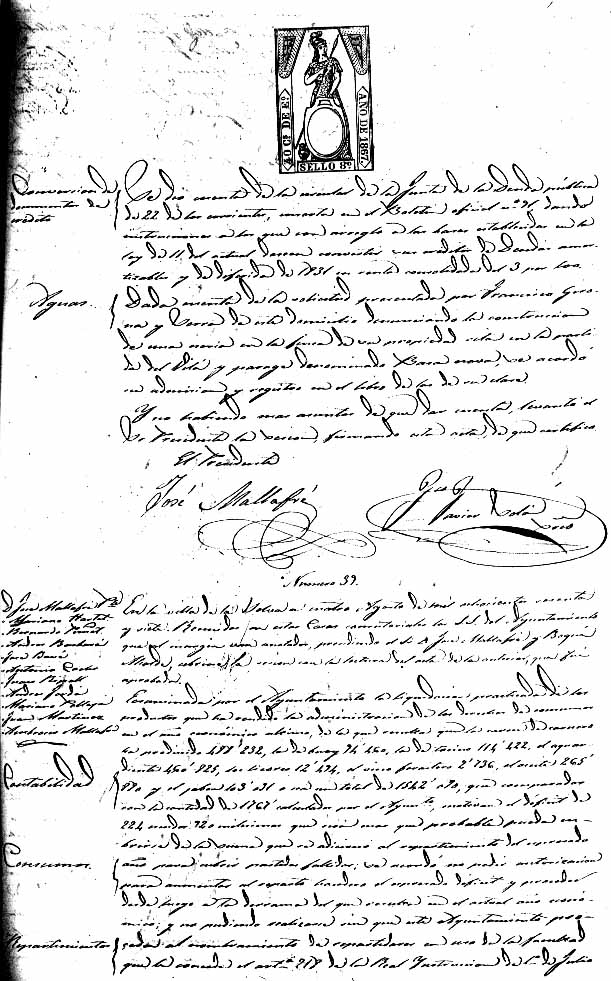 40 Cs. DE Eo.
AÑO DE 1867.
SELLO 8º
Conversion de
documentos de
credito
Se dió cuenta de la circular de la Junta de la Deuda pública
de 22 de los corrientes, inserta en el Boletin oficial nº 91, dando
instrucciones a los que con arreglo a las bases establecidas en la
ley de 11 del actual deseen convertir sus creditos de Deudas amor
tizables y de diferida de 1831 en renta consolidada del 3 por 100.
Aguas
Dada cuenta de la solicitud presentada por Francisco Giro
na y Serra de este domicilio denunciando la construccion
de una noria en la finca de su propiedad sita en la parti
da del y parage denominado Basa nova, se acordó
su admision y registro en el libro de los de su clase.
Y no habiendo mas asuntos de que dar cuenta, levantó el
Sr Presidente la sesion, firmando esta acta, de que certifico.
El Presidente
José Mallafré
Javier
Srio
Numero 39.
D. José Mallafré Pte
Mariano
Andres
José
Antonio
Juan
Andres
Mariano
Juan Martinez
Ambrosio Mallafré
En la villa de la Selva a cuatro Agosto de mil ochocientos sesenta
y siete. Reunidos en estas Casas consistoriales los S.S. del Ayuntamiento
que al margen van anotados, presidiendo el Sr D. José Mallafré y
Alcalde, abrióse la sesion con la lectura del acta de la anterior, que fué
aprobada.
Contabilidad
Examinada por el Ayuntamiento la liquidacion practicada de los
productos que ha rendido la administracion de los derechos de consumos
en el año económico último, de la que resulta que la carne de carnero
ha producido 488'232, la de 74'460, la de tocino 114'422, el aguar
diente 450'825, los licores 12'474, el vino forastero 2'736, el aceite 265
870 y el jabon 43'031 o sea un total de 1542'070, que comparados
con la cantidad de 1767 calculados por el Ayunto, motivan el deficit de
224 escudos 920 milesimas que es mas que probable pueda en-
Consumos
de la suma que se adicionó al repartimiento del espresado
año para cubrir partidas fallidas; se acordó se pida autorizacion
para aumentar al reparto el espresado deficit y proceder
desde luego a la derrama del que resulta en el actual año econó-
mico; y no pudiendo realizarse sin que este Ayuntamiento pro-
Repartimientos
ceda al nombramiento de repartidores en uso de la facultad
que le concede el artº 218 de la Real Instruccion de 1º de Julio